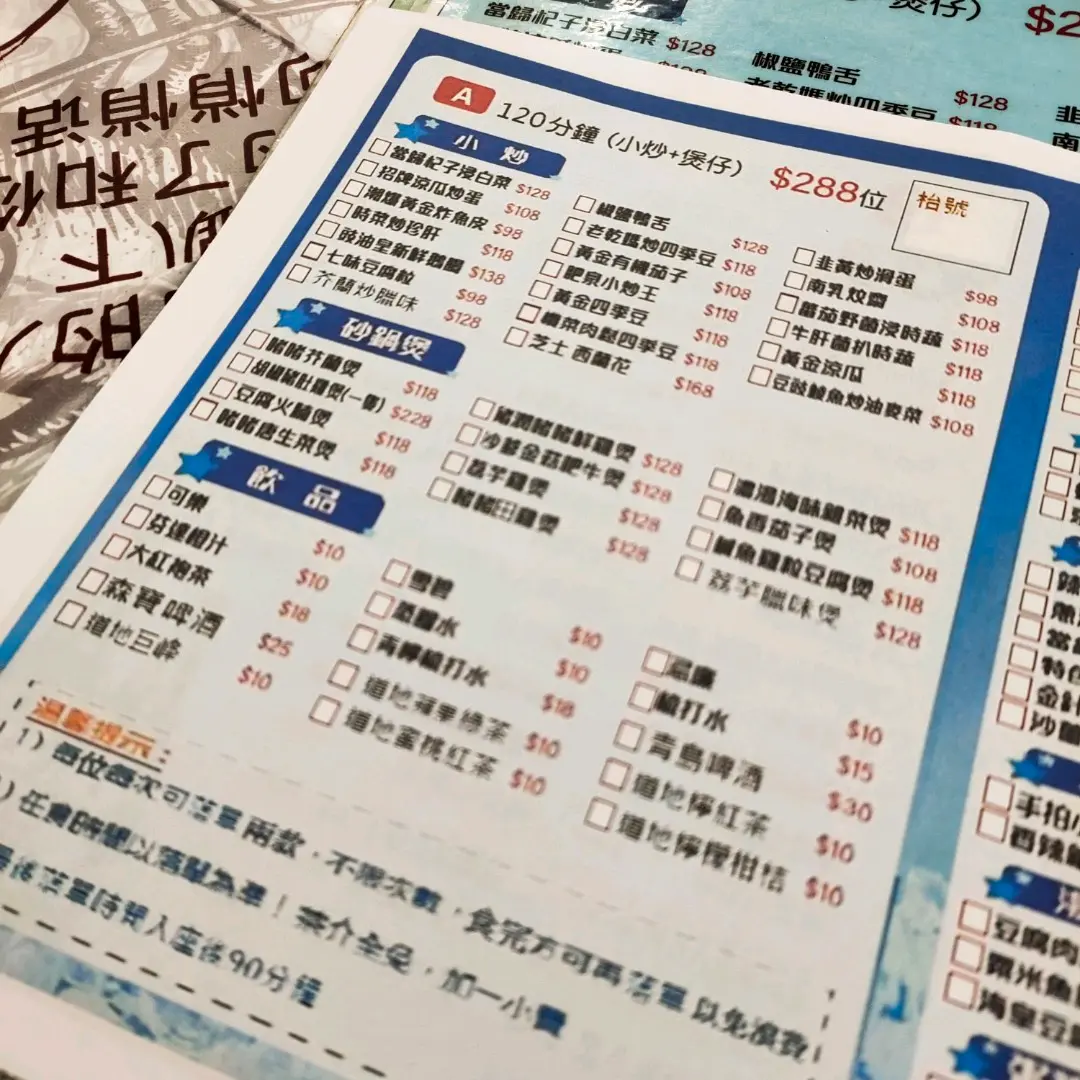 當歸杞子浸白菜 $128
椒鹽鴨舌
老乾媽炒四季豆 $128
$118
A 120分鐘 (小炒+煲仔) $288位
枱號
小炒
當歸杞子浸白菜 $128
招牌涼瓜炒蛋 $108
潮爆黃金炸魚皮 $98
時菜炒珍肝 $118
豉油皇新鮮鵝腸 $138
七味豆腐粒 $98
芥蘭炒臘味 $128
椒鹽鴨舌 $128
老乾媽炒四季豆 $118
黃金有機茄子 $108
肥泉小炒王 $118
黃金四季豆 $118
欖菜肉鬆四季豆 $118
芝士西蘭花 $168
韭黃炒滑蛋 $98
南乳炆齋 $108
蕃茄野菌浸時蔬 $118
牛肝菌扒時蔬 $118
黃金涼瓜 $118
豆豉鯪魚炒油麥菜 $108
砂鍋煲
啫啫芥蘭煲 $118
胡椒豬肚雞煲(一隻) $228
豆腐火腩煲 $118
啫啫唐生菜煲 $118
豬潤啫啫鮮雞煲 $128
沙爹金菇肥牛煲 $128
荔芋雞煲 $128
啫啫田雞煲 $128
海味雜菜煲 $118
魚香茄子煲 $108
鹹魚雞粒豆腐煲 $118
荔芋臘味煲 $128
飲品
可樂 $10
芬達橙汁 $10
大紅袍茶 $18
森寶啤酒 $25
道地巨峰 $10
雪碧 $10
蒸餾水 $10
青檸梳打水 $18
道地蘋果綠茶 $10
道地蜜桃紅茶 $10
忌廉 $10
梳打水 $15
青島啤酒 $30
道地檸紅茶 $10
道地檸檬柑桔 $10
溫馨提示：
1）每位每次可落單兩款，不限次數，食完方可再落單以免浪費！
任食時間以落單為準！茶介全免，加一小費
最後落單時間入座後90分鐘
手拍
香辣
豆腐肉
粟米魚
海皇豆